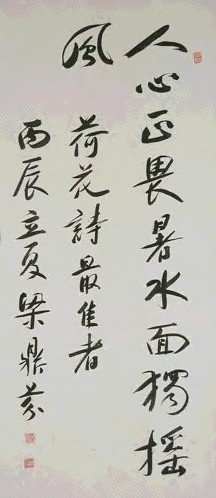 人心正畏暑水面獨搖
風
荷花詩最佳者
丙辰立夏梁鼎芬